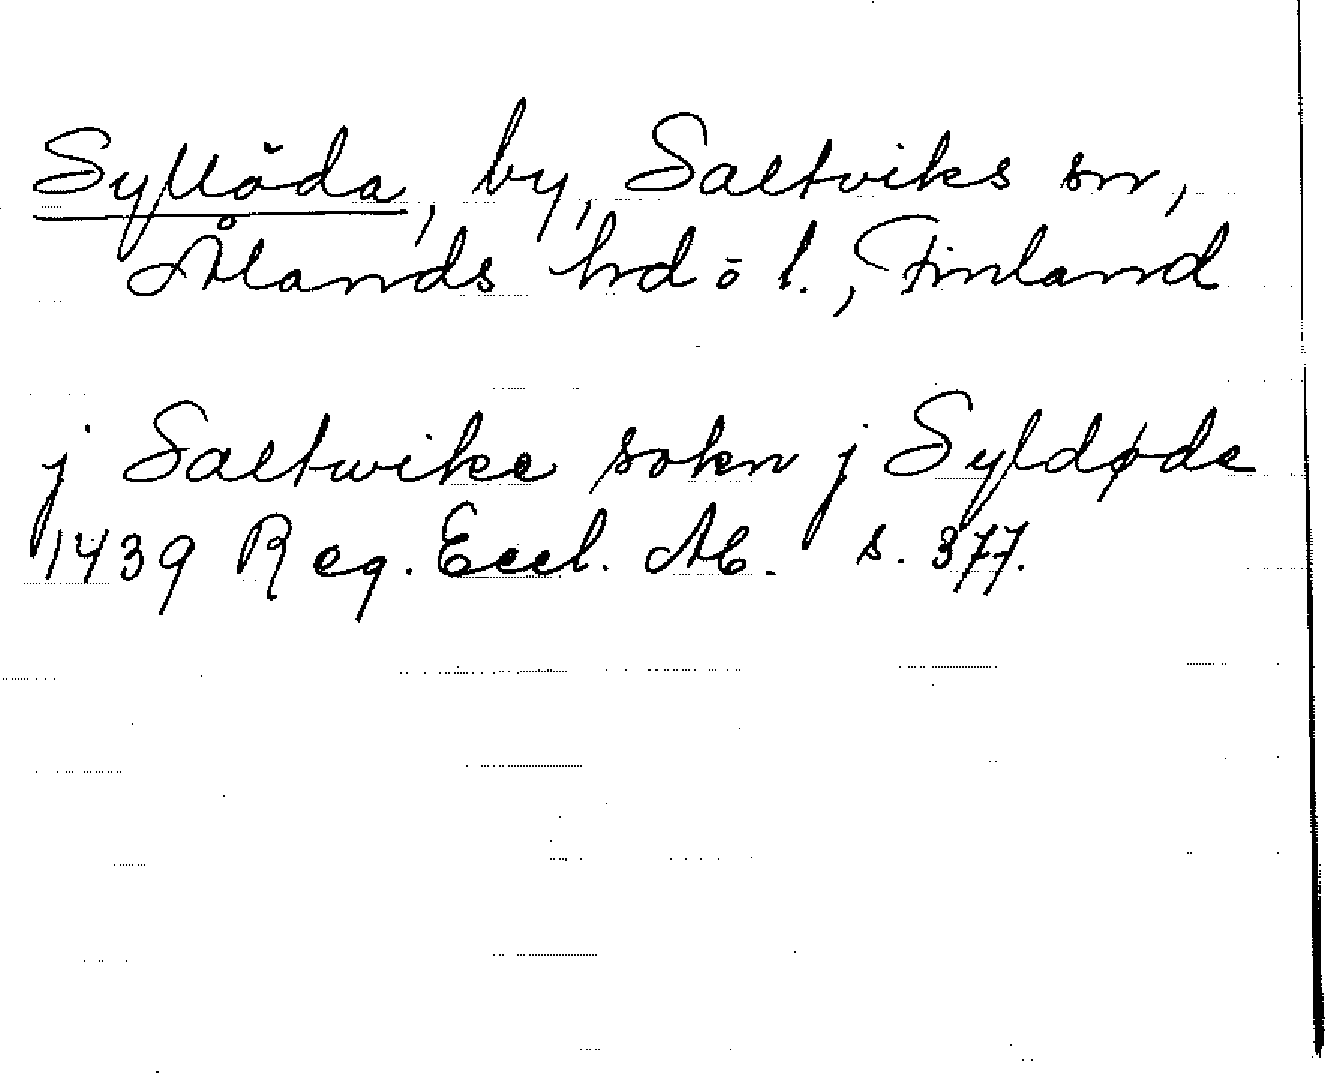 Syllöda, by, Saltviks sn,
Ålands hd o l., Finland
j Saltwike sokn j Syldøde
1439 Reg. Eccl. Ab. s. 377.